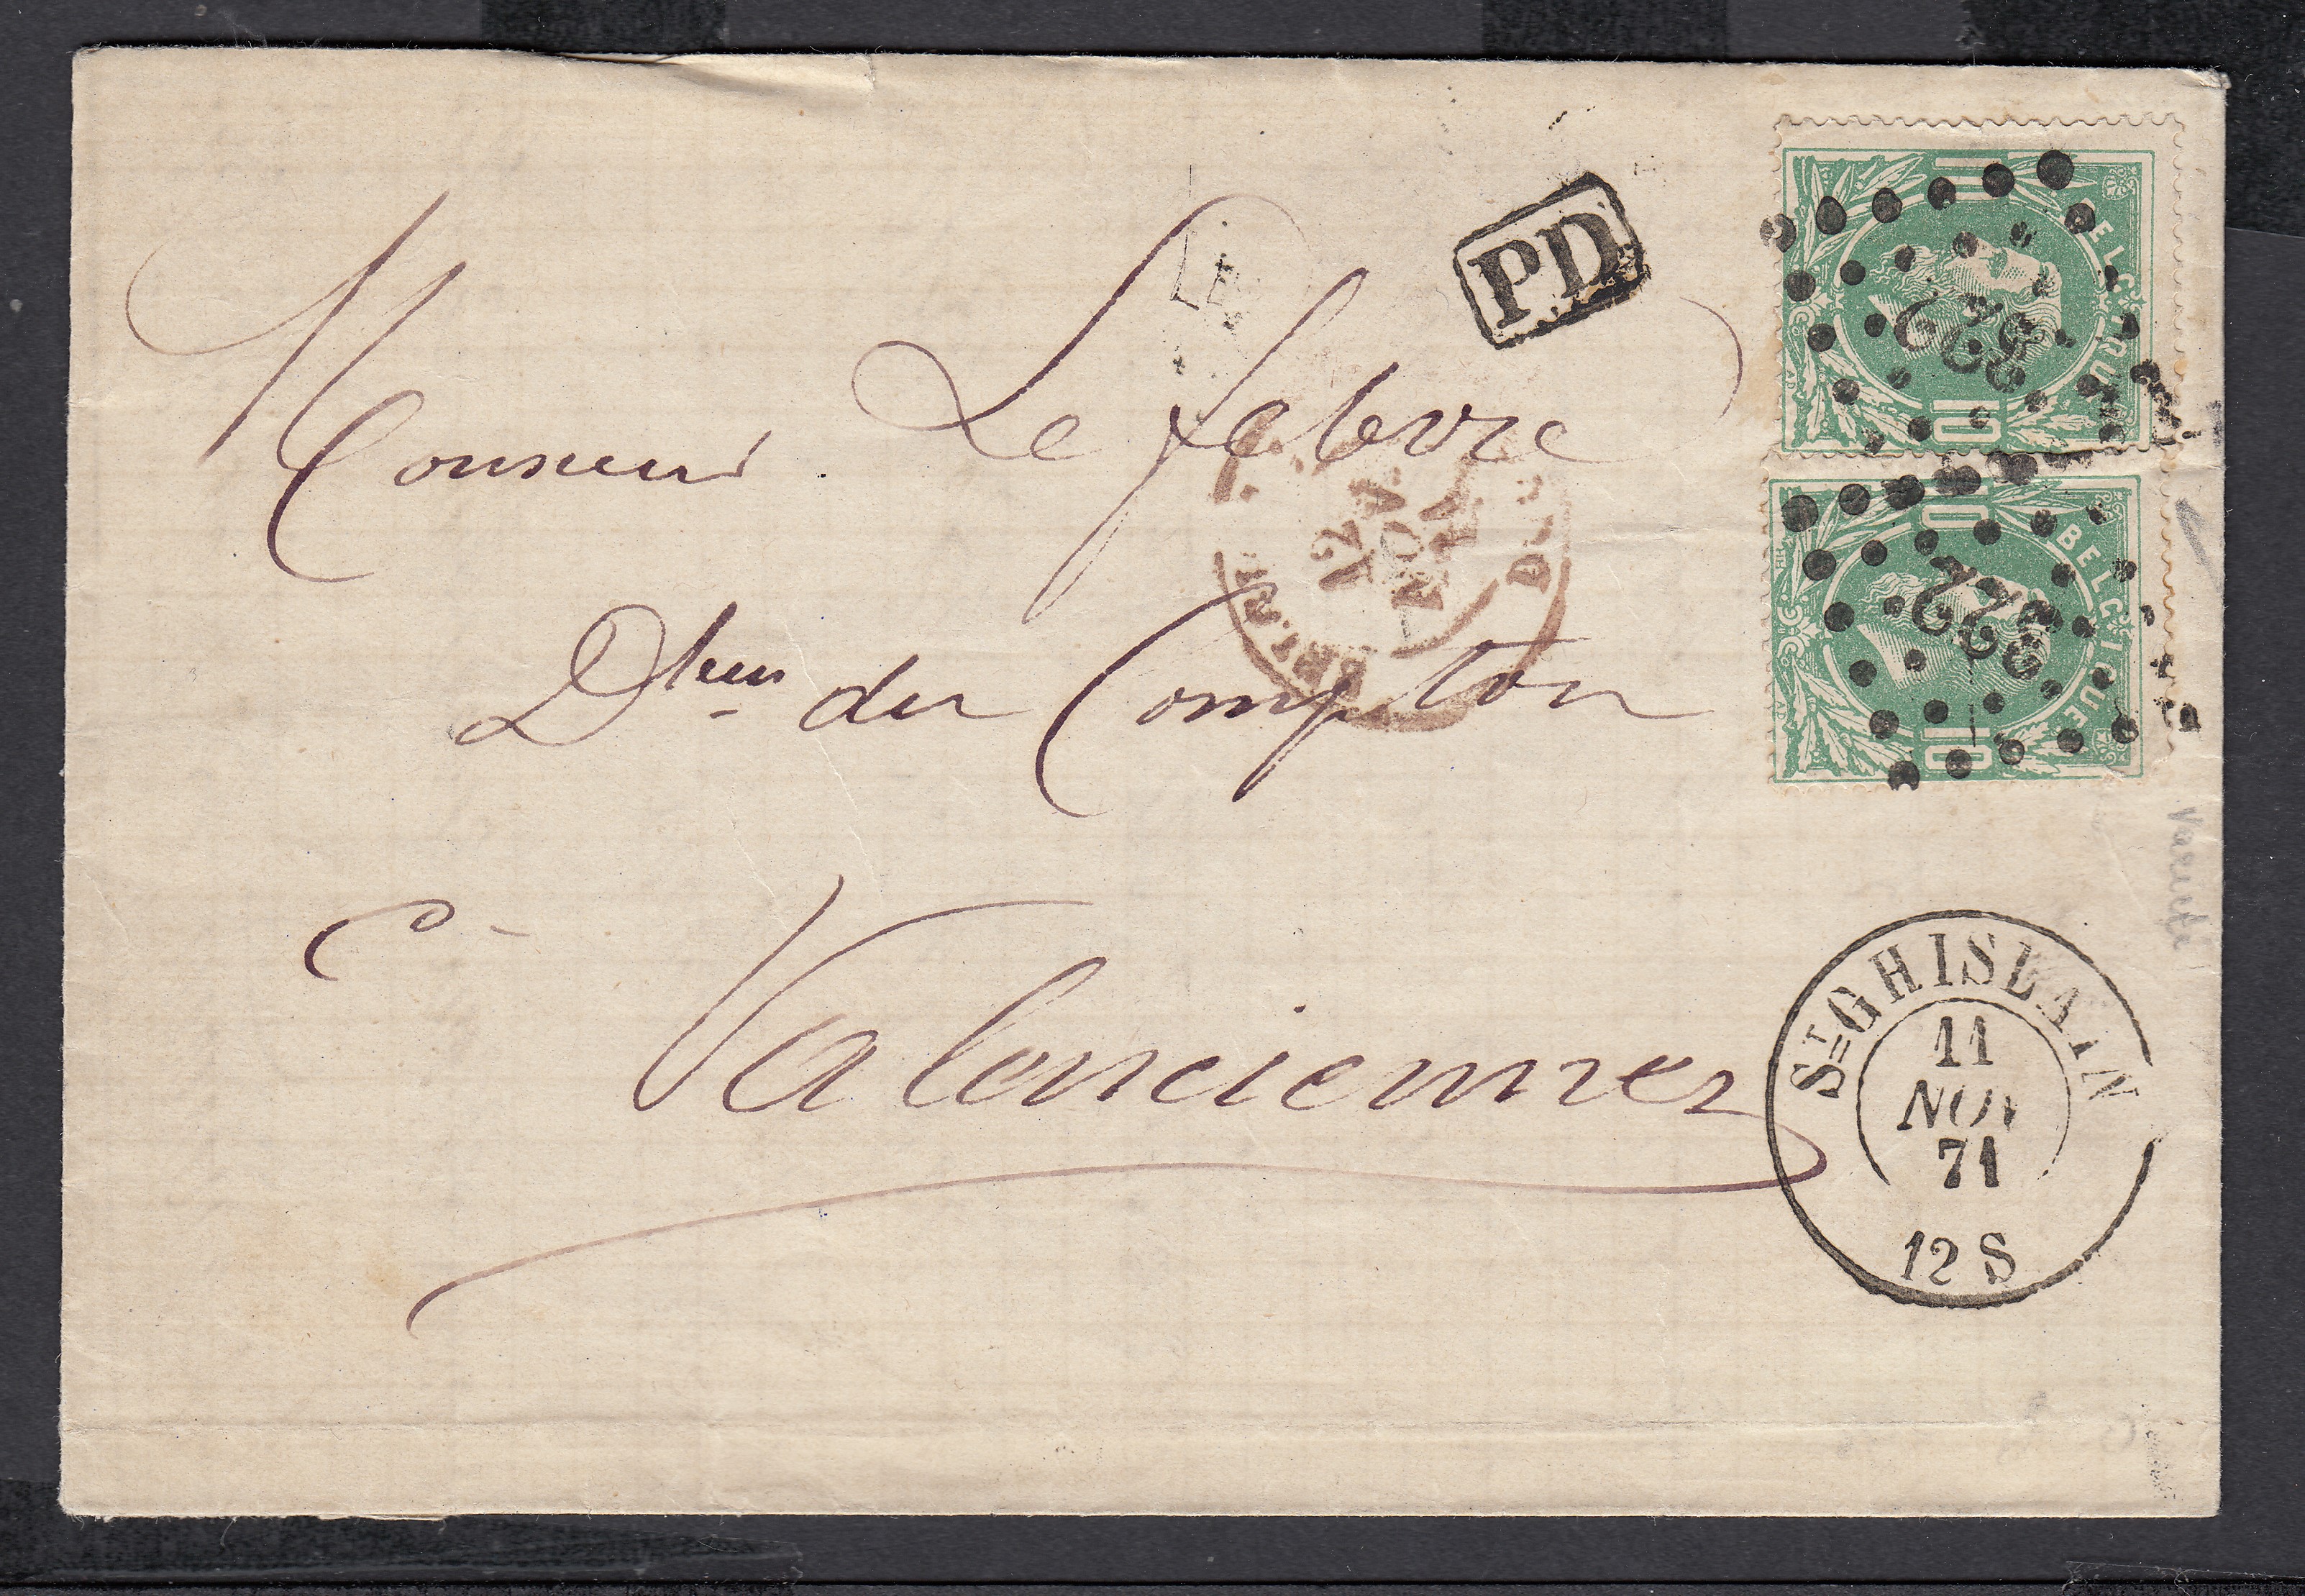 PD
Monsieur Le febvre
12
NOV
71
Dteur du Comptoir
à
Valenciennes
10 BELGIQUE 10
322
10 BELGIQUE 10
322
ST GHISLAIN
11
NOV
71
12 S